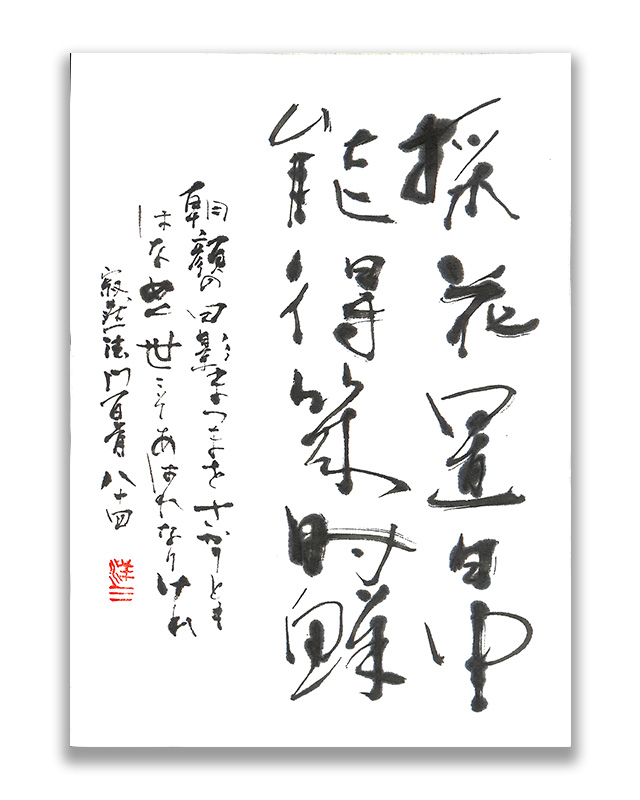 採花置日中
能得幾時鮮
朝顔の日影まつまをさかりとも
はなめく世こそあはれなりけれ
寂然法門百首 八十四